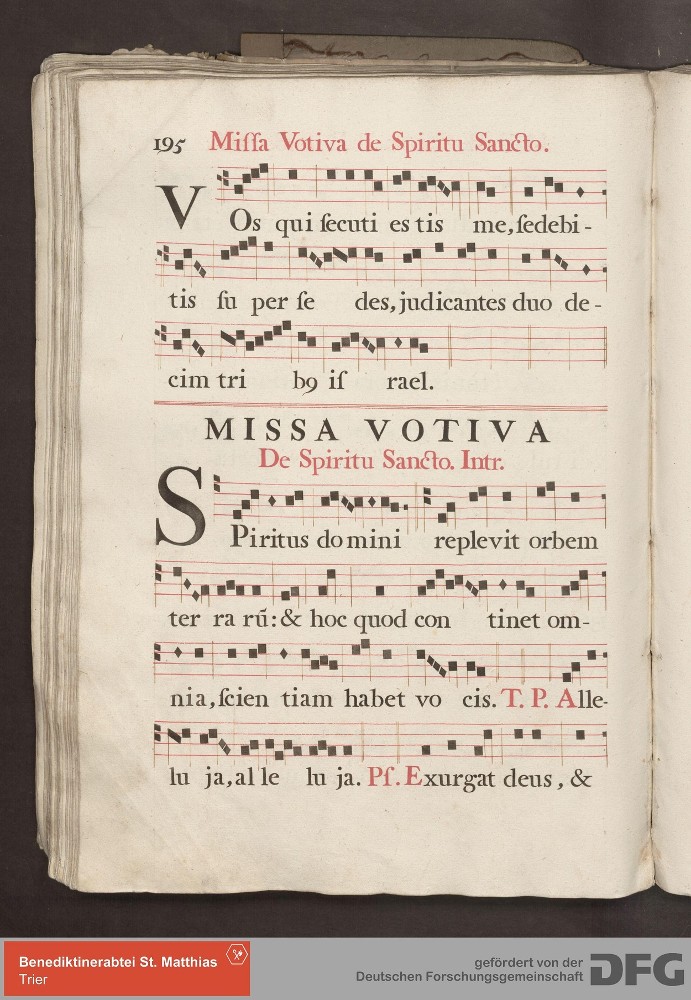 195 Miſſa Votiva de Spiritu Sancto.
VOs qui ſecuti es tis me, ſedebi-
tis ſu per ſe des, judicantes duo de-
cim tri b9 iſ rael.
MISSA VOTIVA
De Spiritu Sancto. Intr.
SPiritus do mini replevit orbem
ter ra rũ: & hoc quod con tinet om-
nia, ſcien tiam habet vo cis. T. P. Alle-
lu ja, al le lu ja. Pſ. Exurgat deus, &
Benediktinerabtei St. Matthias
Trier
gefördert von der
Deutschen Forschungsgemeinschaft
DFG